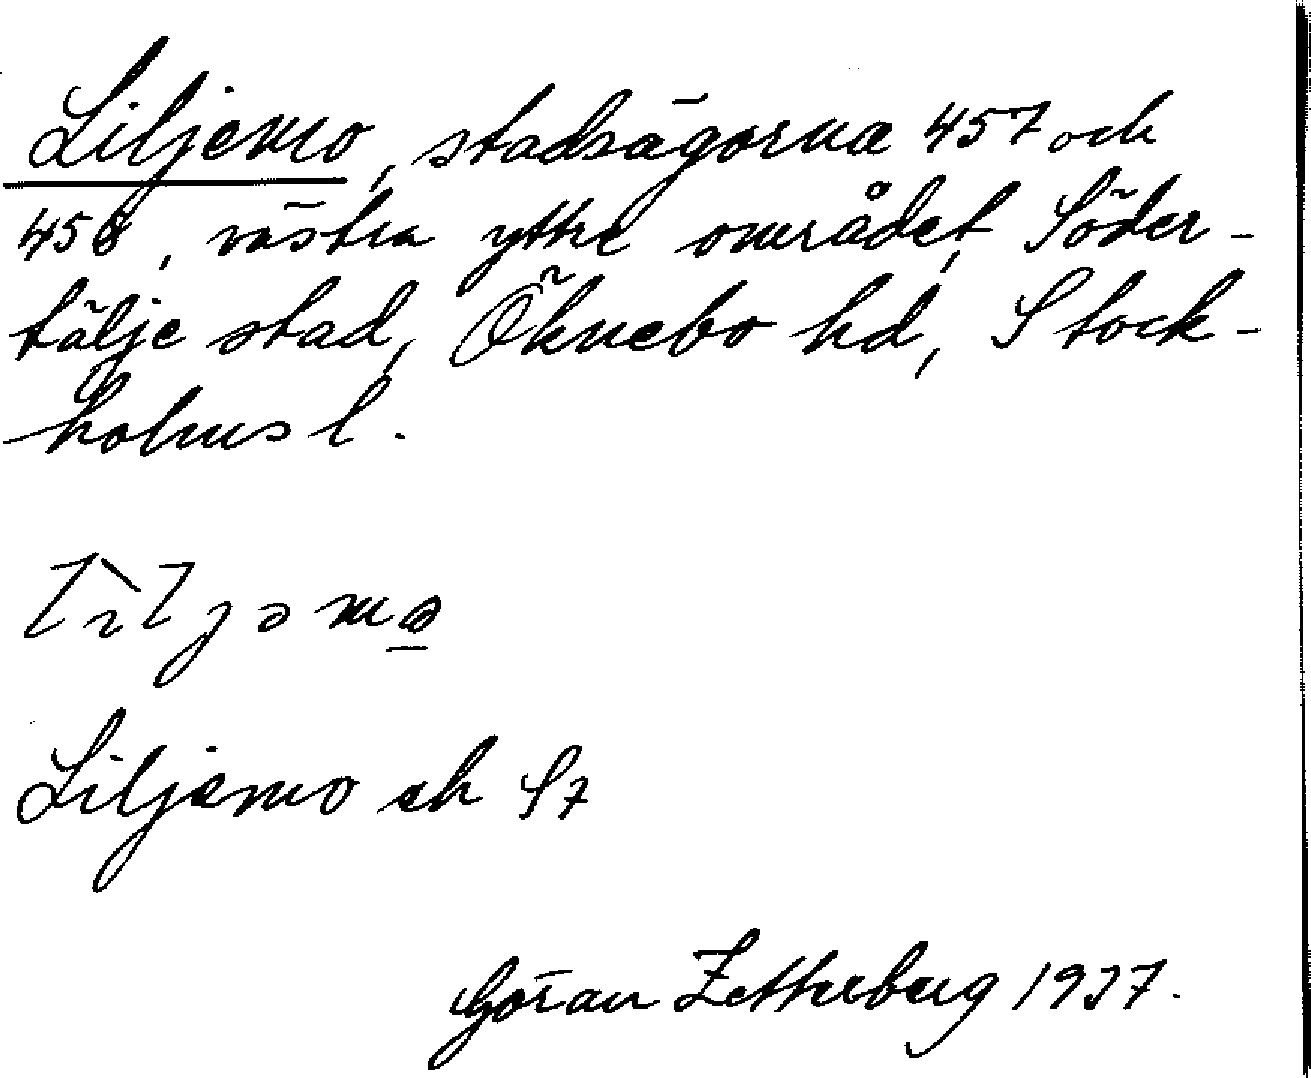 Liljemo, stadsägorna 457 och
458, västra yttre området, Söder-
tälje stad, Öknebo hd, Stock-
holms l.
Liljemo ek
Göran Zetterberg 1937.